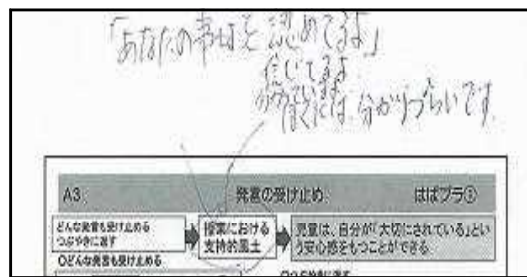 「あなたの事は 認めてるよ」
信じてるよ
ぼくには、分かりづらいです
A3 発言の受け止め はばプラ①
どんな発言も受け止める
つぶやきに返す
授業における
支持的風土
児童は、自分が「大切にされている」とい
う安心感をもつことができる
〇どんな発言も受け止める
〇つぶやきに返す